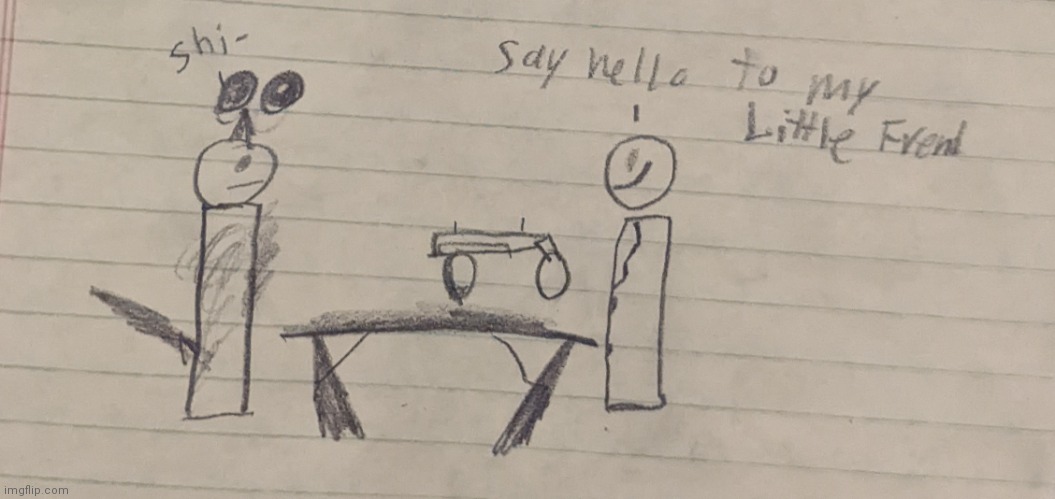 shi-
Say hello to my
Little Frend
imgflip.com